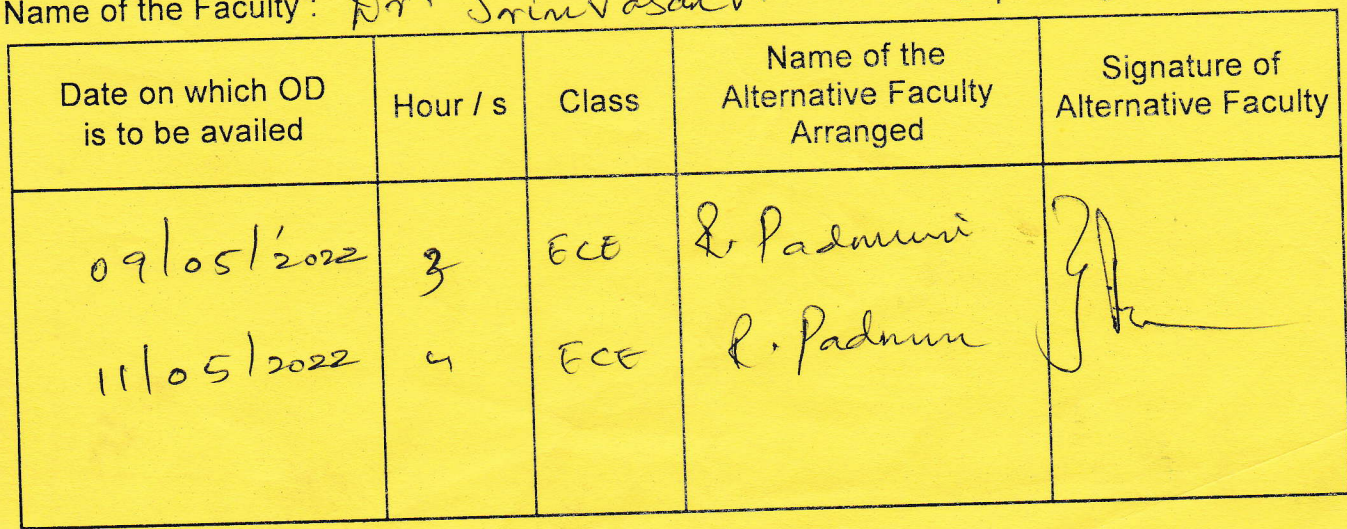 Name of the Faculty : Dr. Srinivasan
Date on which OD is to be availed
Hour / s
Class
Name of the Alternative Faculty Arranged
Signature of Alternative Faculty
09/05/2022 3 ECE R. Padmini
11/05/2022 4 ECE R. Padmini